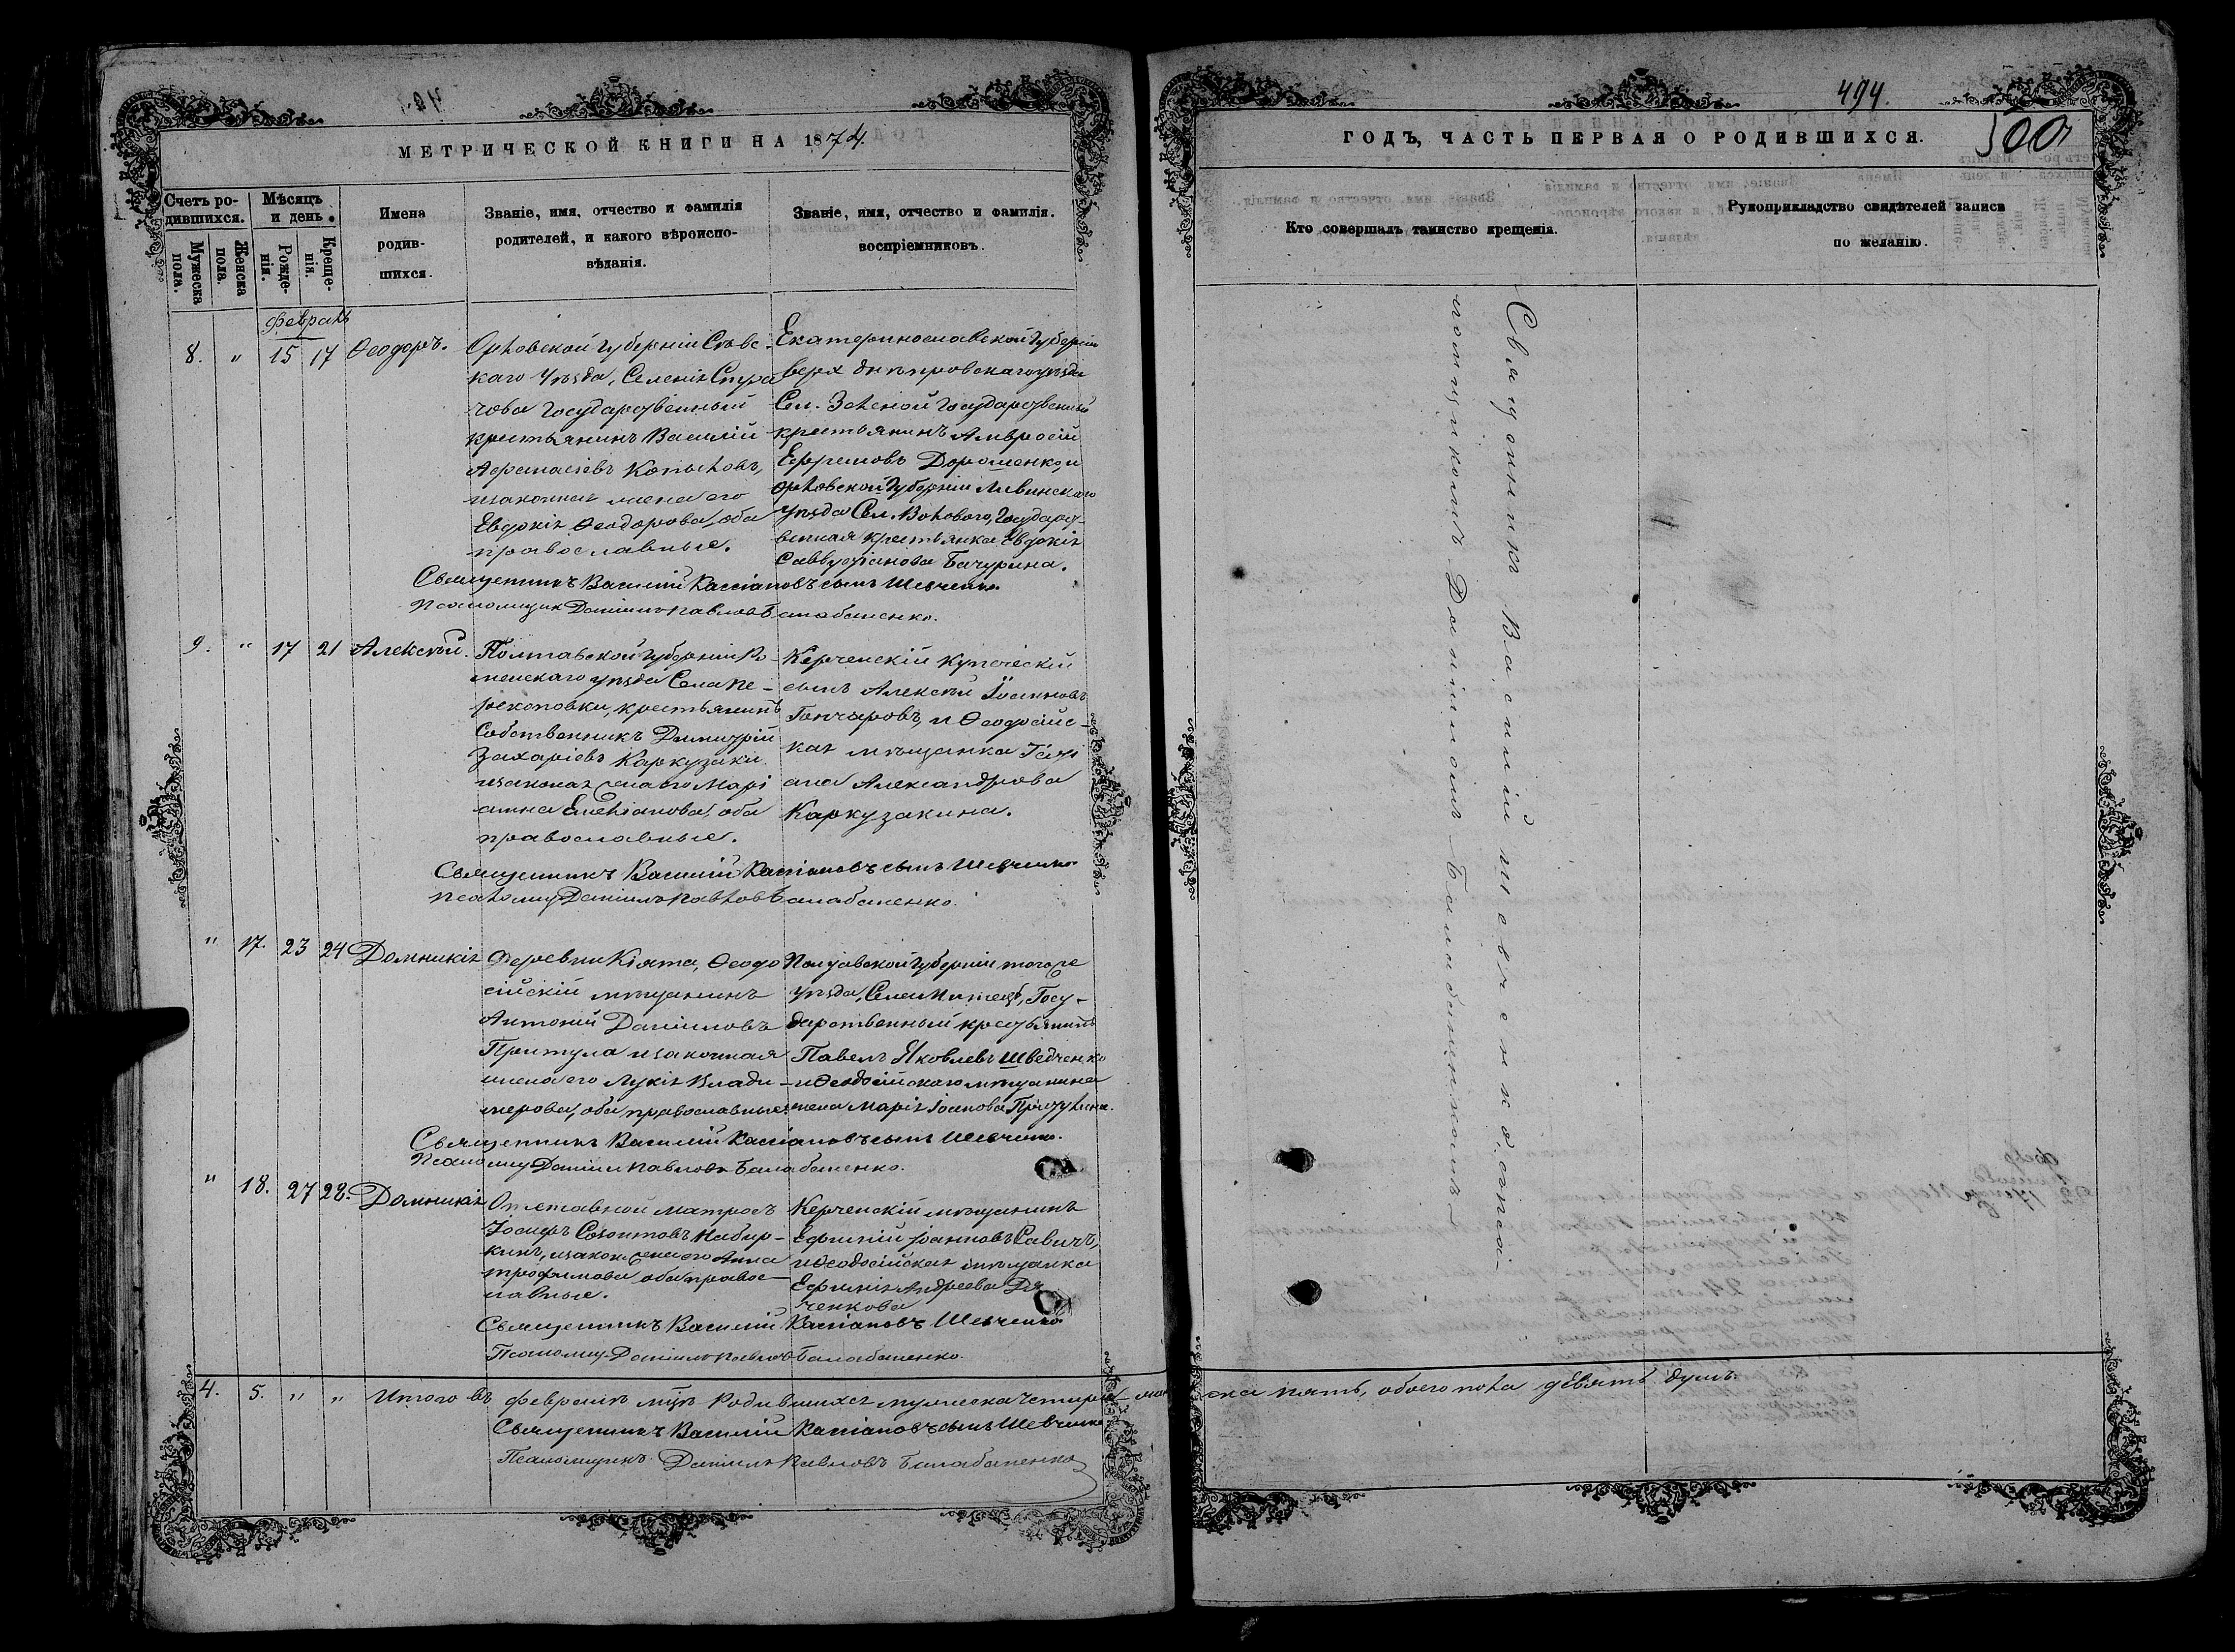 494.
500
МЕТРИЧЕСКОЙ КНИГИ НА 1874.
ГОДЪ, ЧАСТЬ ПЕРВАЯ О РОДИВШИХСЯ.
Счетъ ро-
дившихся.
Мужеска
пола.
Женска
пола.
Мѣсяцъ
и день.
Рожде-
нія.
Креще-
нія.
Имена
родив-
шихся.
Званіе, имя, отчество и фамилія
родителей, и какого вѣроиспо-
вѣданія.
Званіе, имя, отчество и фамилія.
воспріемниковъ.
Кто совершалъ таинство крещенія.
Рукоприкладство свидѣтелей записи
по желанію.
Февраль
8. " 15 17 Ѳеодоръ.
Орловской Губерніи Сѣвс-
каго Уѣзда, Селенія Стра
чова Государственный
крестьянинъ Василій
Афанасіевъ Копыловъ,
и законная жена его
Евдокія Ѳеодорова, оба
православные.
Екатеринославской Губерніи
верхднѣпровскаго уѣзда
Сел. Зеленой Государственный
крестьянинъ Амвросій
Ефремовъ Дорошенко, и
Орловской Губерніи Ливенскаго
Уѣзда Сел. Волового, Государст-
венная Крестьянка Евдокія
Бачурина.
Священникъ Василій Кассіановъ сынъ Шевченко
Псаломщик Даніилъ Павловъ Балабаненко.
9. " 17 21 Алексѣй.
Полтавской Губерніи Ро-
менскаго уѣзда Села Пе-
рекоповки, крестьянинъ
Собственникъ Димитрій
Захаріевъ Каркузаки
и законная жена его Марі
анна Емеліанова, оба
православные.
Керченскій Купеческій
сынъ Алексѣй Іоанновъ
Гончаровъ, и Ѳеодосійс-
кая мѣщанка Тáті
ана Александрова
Каркузакина.
Священникъ Василій Кассіановъ сынъ Шевченко
Псаломщ Даніилъ Павловъ Балабаненко.
" 17. 23 24 Домникія
Деревни Кіята, Ѳеодо
сійскій мѣщанинъ
Антоній Даніиловъ
Притула и законная
жена его Лукія Влади-
мерова, оба православные.
Полтавской Губерніи тогоже
уѣзда, Села Мачехъ, Госу-
дарственный крестьянинъ
Павелъ Яковлевъ Шведченко
и Ѳеодосійскаго мѣщанина
жена Марія Іоанова Притулина.
Священникъ Василій Кассіановъ сынъ Шевченко.
Псаломщ Даніил Павловъ Балабаненко.
" 18. 27 28. Домникія
Отставной матросъ
Іосифъ Созонтовъ Набир-
кинъ, и закон. жена его Анна
трофимова оба правос-
лавные.
Керченскій мѣщанинъ
Ефимій Іоанновъ Савичъ,
и Ѳеодосійская мѣщанка
Ефимія Андреева Дя
ченкова
Священникъ Василій Кассіановъ Шевченко
Псаломщ. Даніилъ Павловъ Балабаненко.
4. 5. " " Итого въ февралѣ мцѣ Родившихся мужеска четыре, женска пять, обоего пола девять душъ.
Священникъ Василій Кассіановъ сынъ Шевченко
Псаломщикъ Даніилъ Павловъ Балабаненко
Священникъ Василій Шевченко, съ псаломщикомъ Даніиломъ Балабаненкомъ